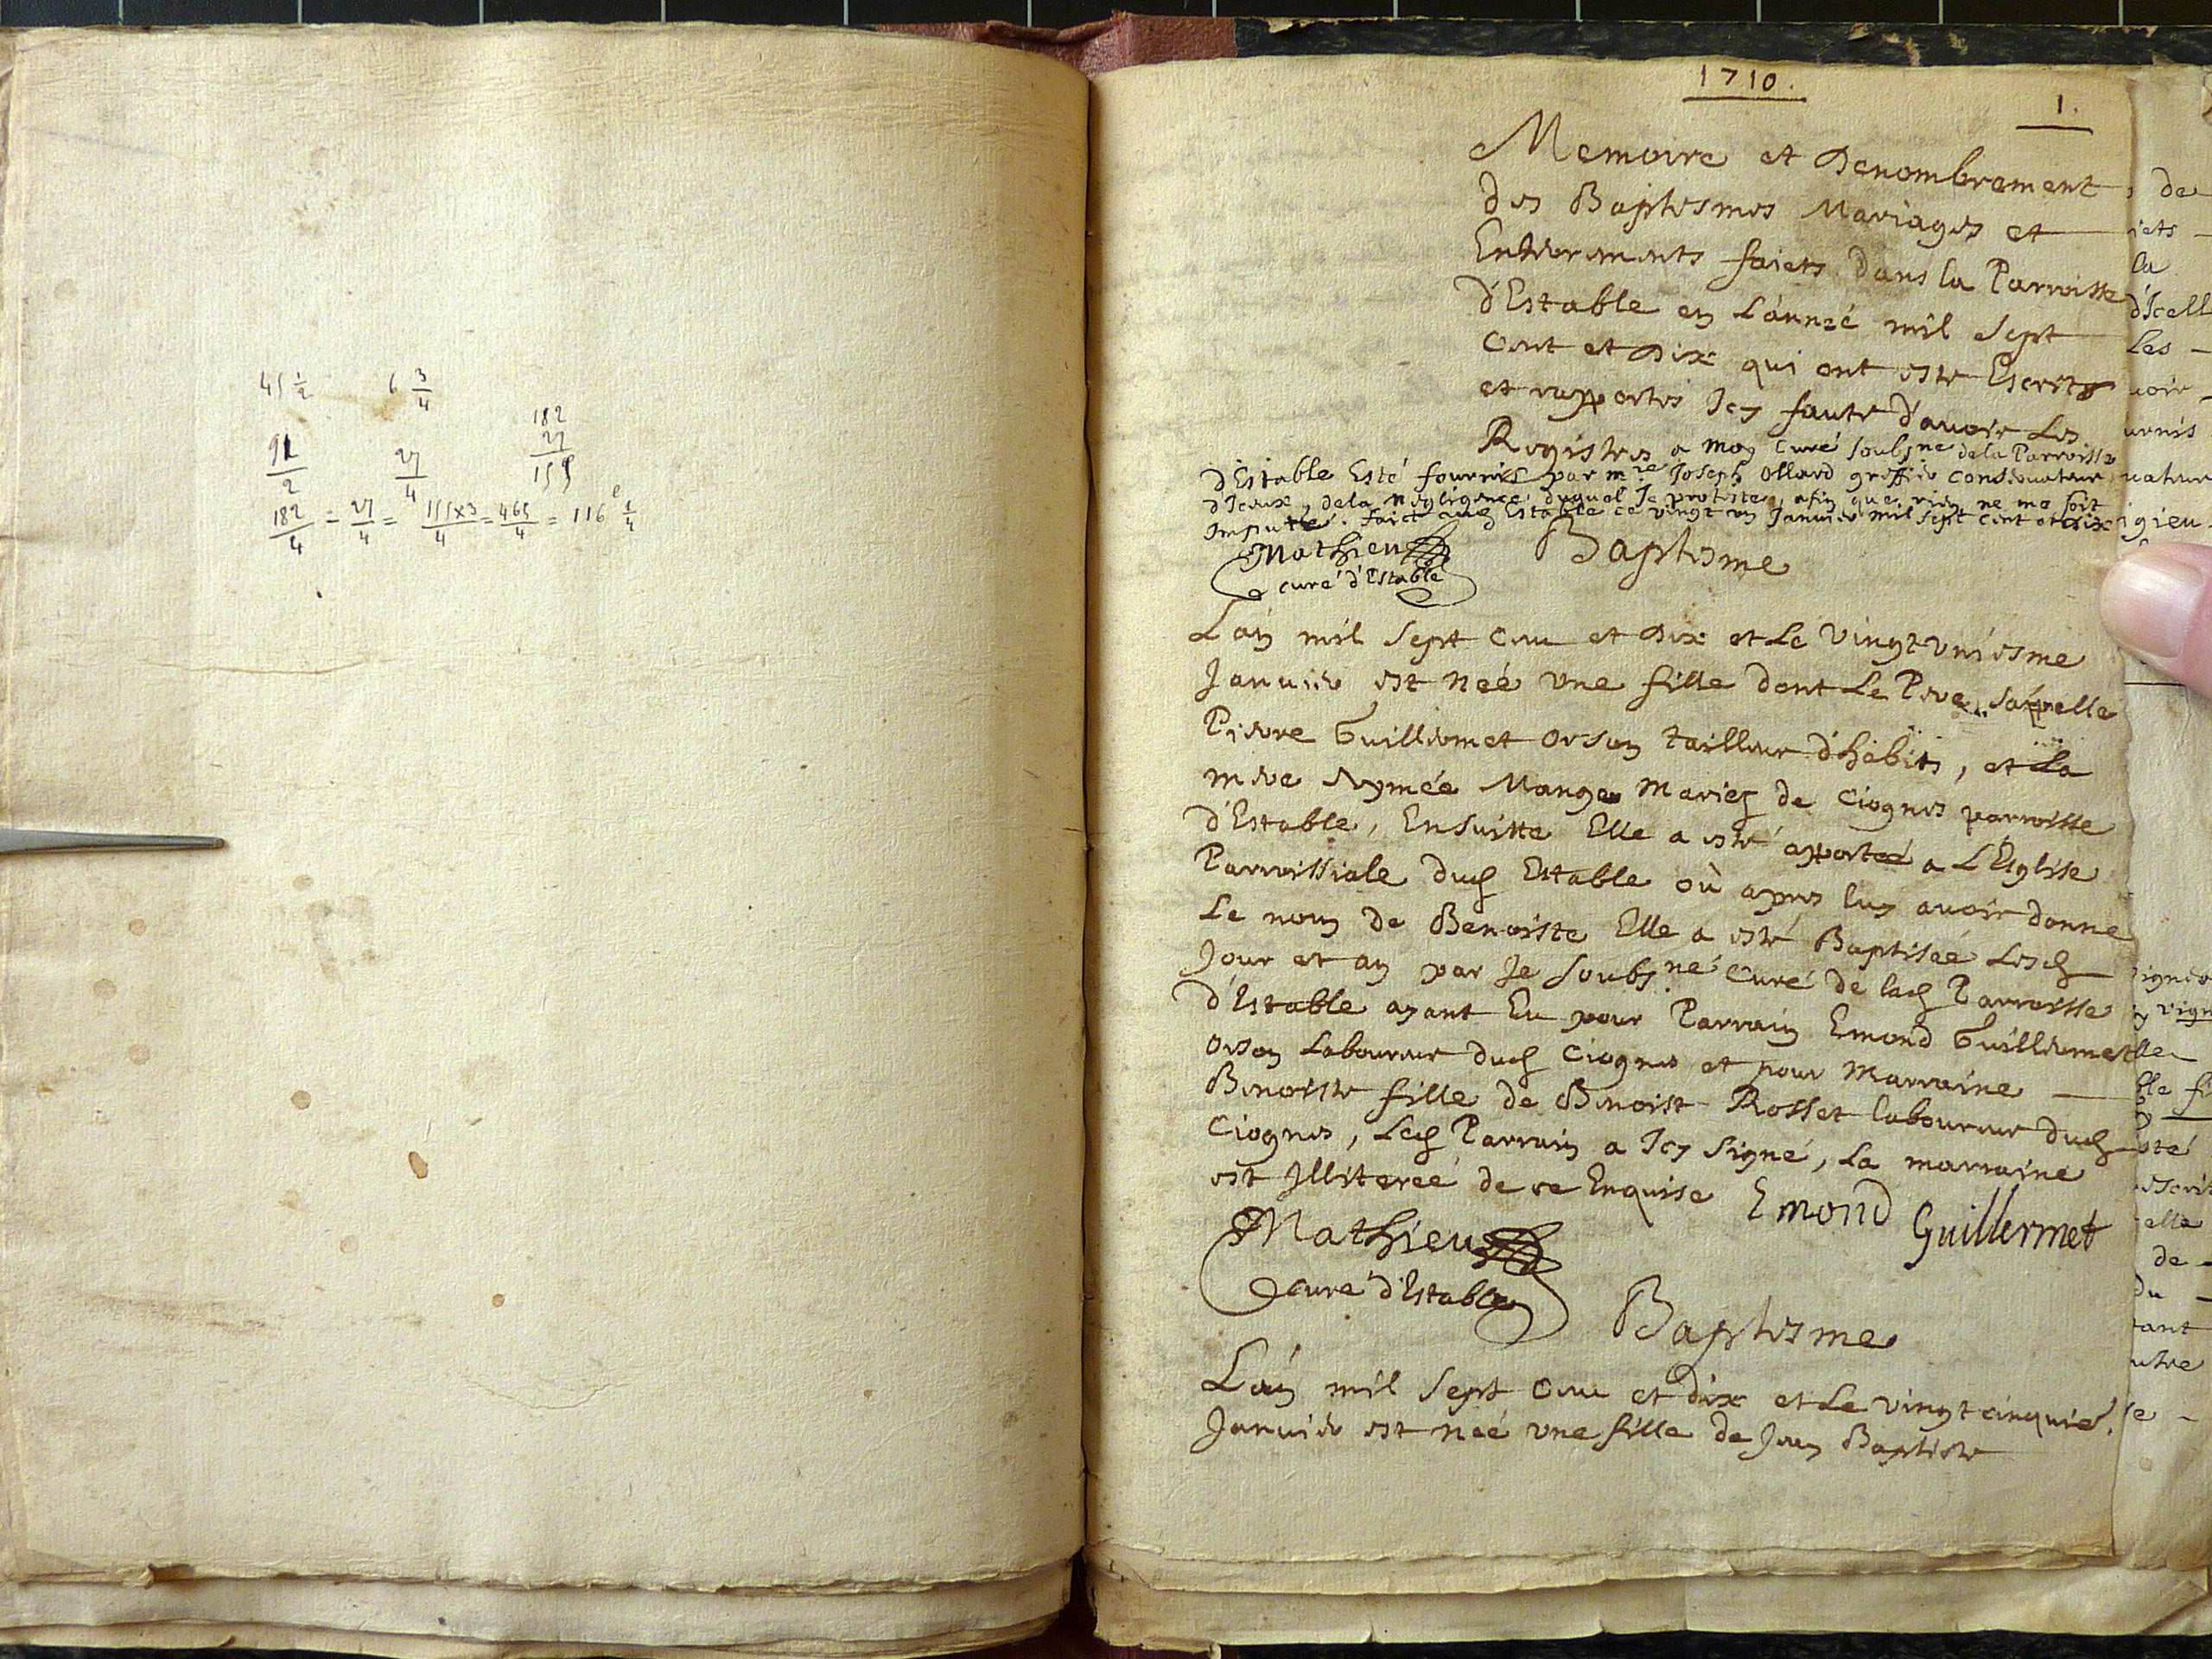 45 1/2 6 3/4
91/2 27/4 182
27
155
182/4 = 27/4 = 155x3/4 = 465/4 = 116 1/4
1710.
1.
Memoire et Denombrement
des Baptesmes Mariages et
Enterrements faicts dans la Parroisse
d'Estable en L'année mil sept
cent et dix qui ont esté Escrits
et rapportés Icy faute d'avoir Les
Registres a moy Curé soubs.né de la Parroisse
d'Estable Esté fournis par m.re Joseph Ollard greffier conservateur
d'Iceux, de la negligence duquel Je proteste, afin que rien ne me soit
Imputé. faict aud Estable ce vingt un Janvier mil sept cent et dix
Mathieu
curé d'Estable
Baptesme
L'an mil sept cent et dix et Le vingt uniesme
Janvier est neé une fille dont Le Pere s'appelle
Pierre Guillermet Orson tailleur d'habits, et La
mere Aymée Mange mariez de Ciognes parroisse
d'Estable, Ensuitte Elle a esté apporteé a L'Eglise
Parroissiale dud Estable où apres luy avoir donne
Le nom de Benoiste Elle a esté Baptiseé Lesd
Jour et an par Je soubs.né Curé de lad Parroisse
d'Estable ayant Eu pour Parrain Emond Guillermet
Orson Laboureur dud Ciognes et pour Marraine
Benoiste fille de Benoist Rosset laboureur dud
Ciognes, Led Parrain a Icy signé, La marraine
est Illitereé de ce Enquise Emond Guillermet
Mathieu
curé d'Estable
Baptesme
L'an mil sept cent et dix et Le vingt cinquié.
Janvier est neé une fille de Jean Baptiste